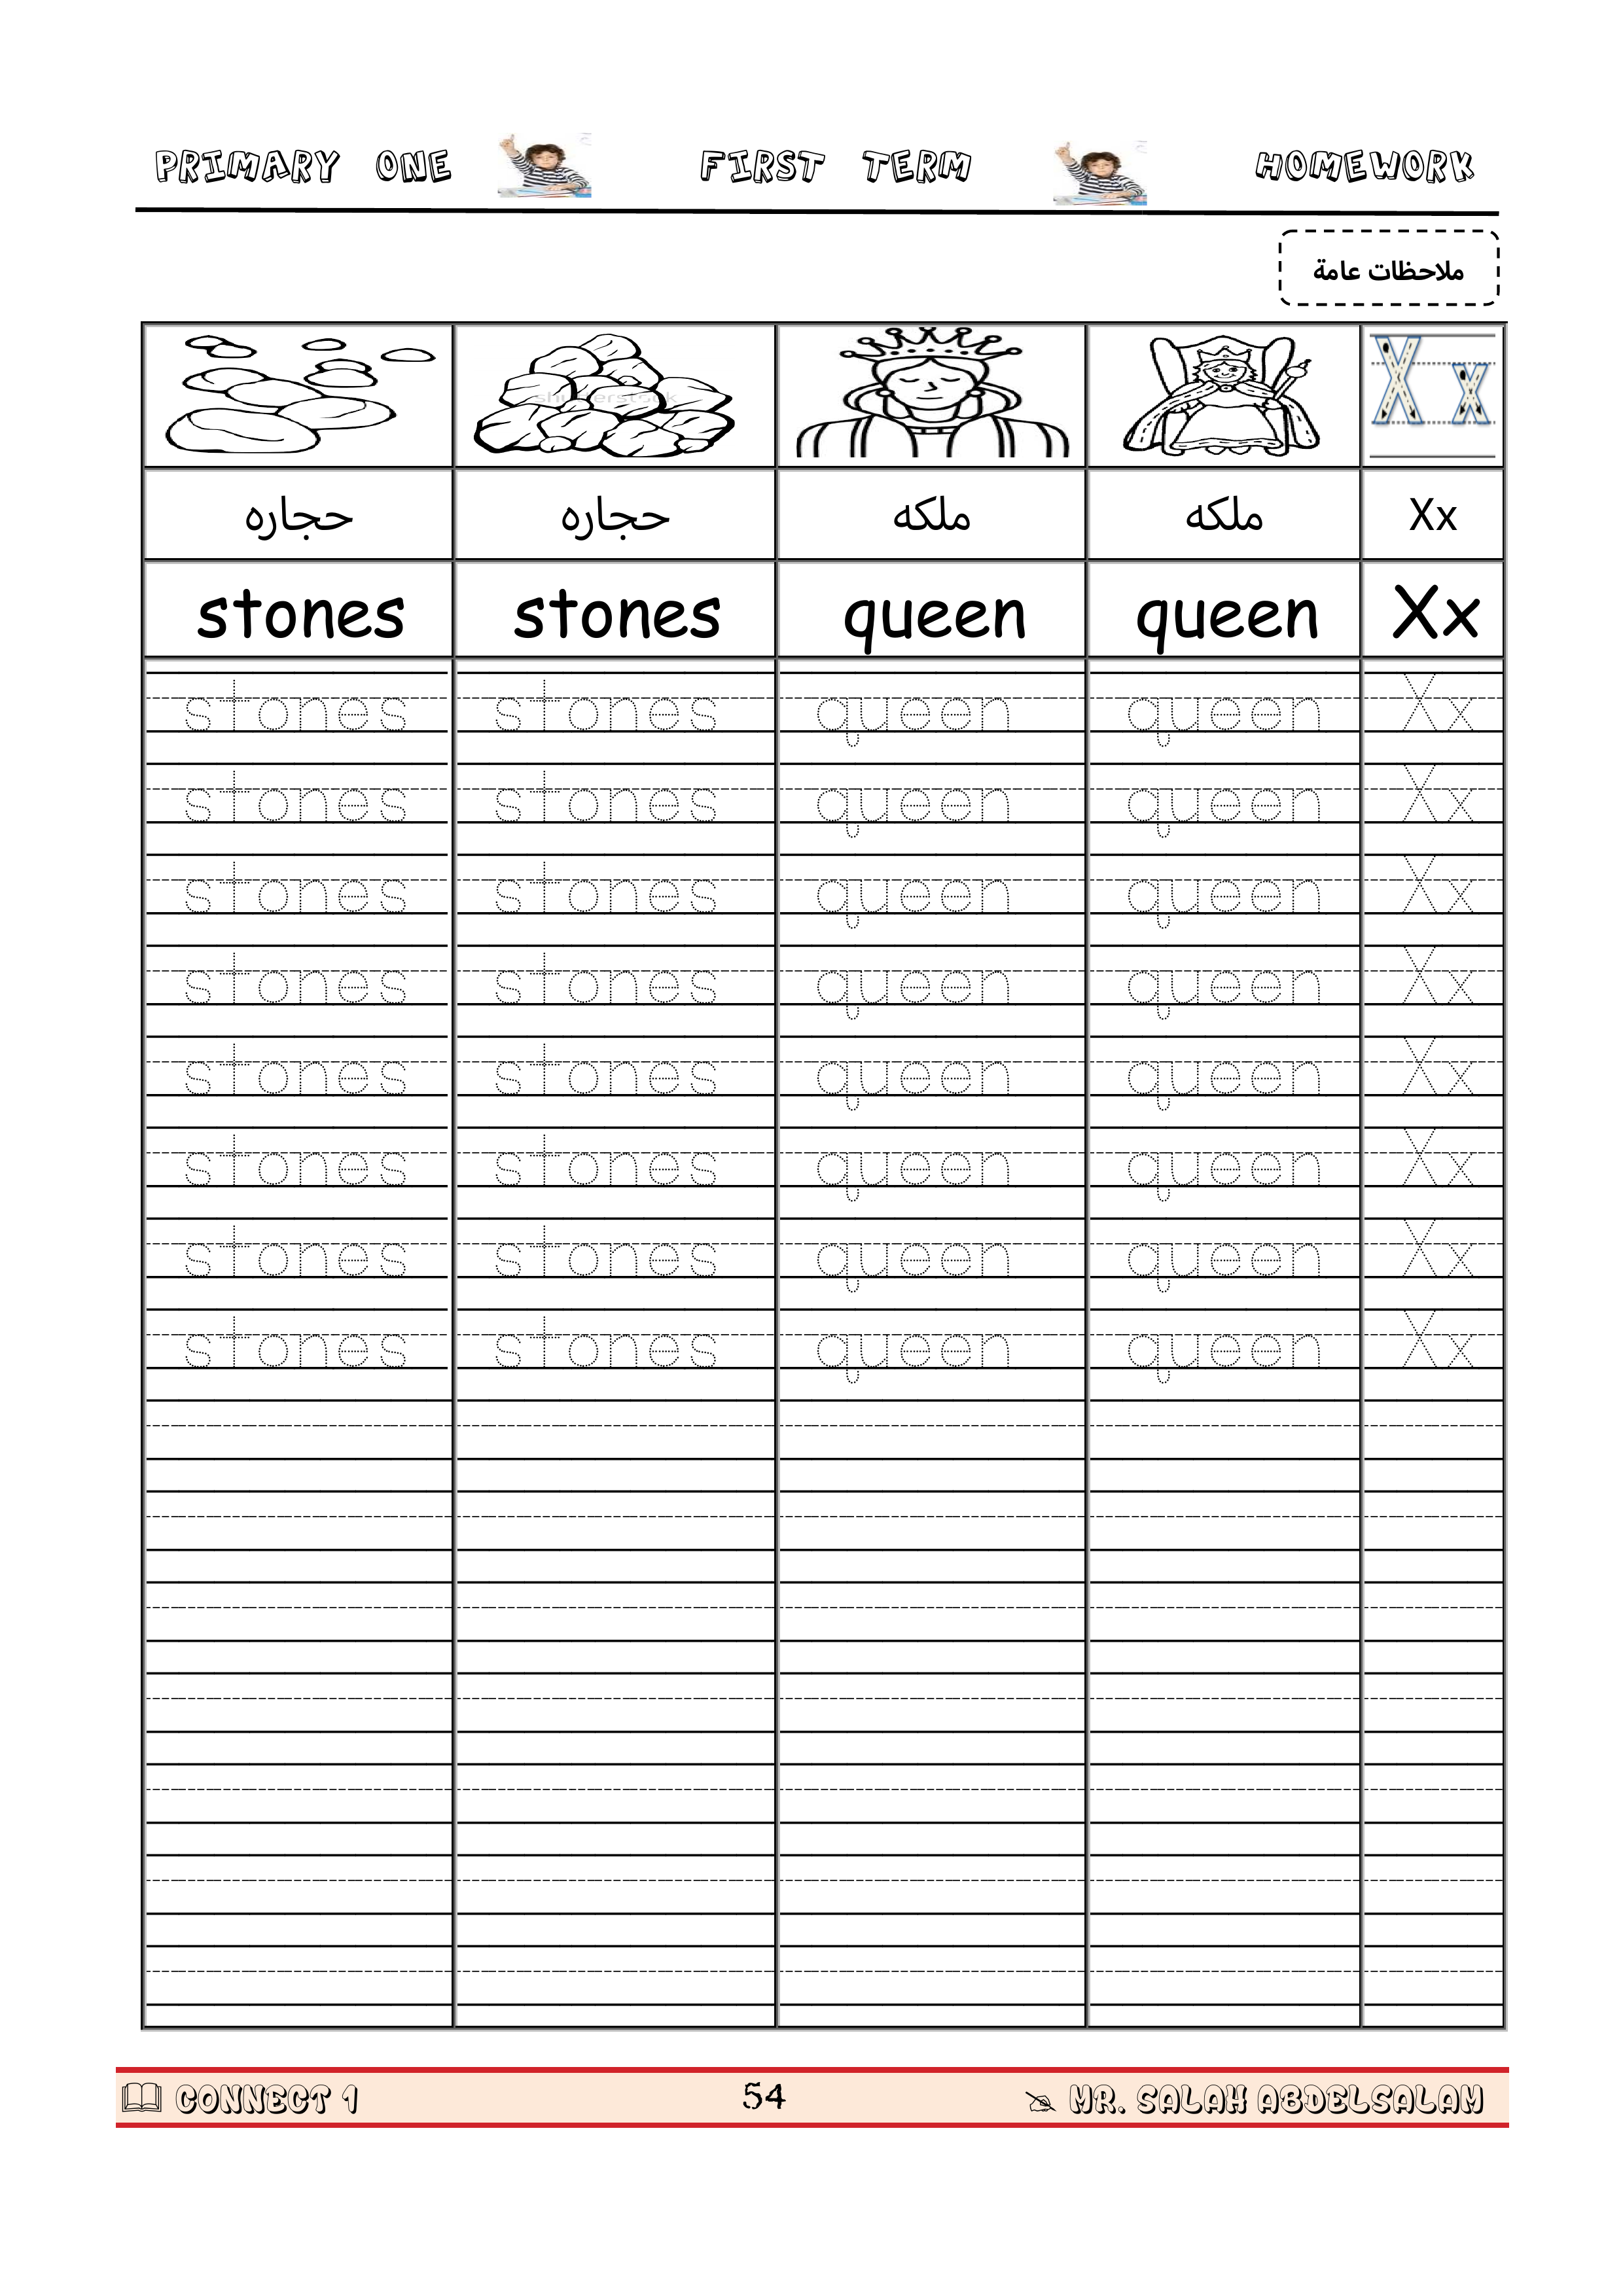 PRIMARY ONE FIRST TERM HOMEWORK
ملاحظات عامة
Xx
shutterstock
حجاره حجاره ملكه ملكه Xx
stones stones queen queen Xx
stones stones queen queen Xx
stones stones queen queen Xx
stones stones queen queen Xx
stones stones queen queen Xx
stones stones queen queen Xx
stones stones queen queen Xx
stones stones queen queen Xx
stones stones queen queen Xx
CONNECT 1 54 MR. SALAH ABDELSALAM